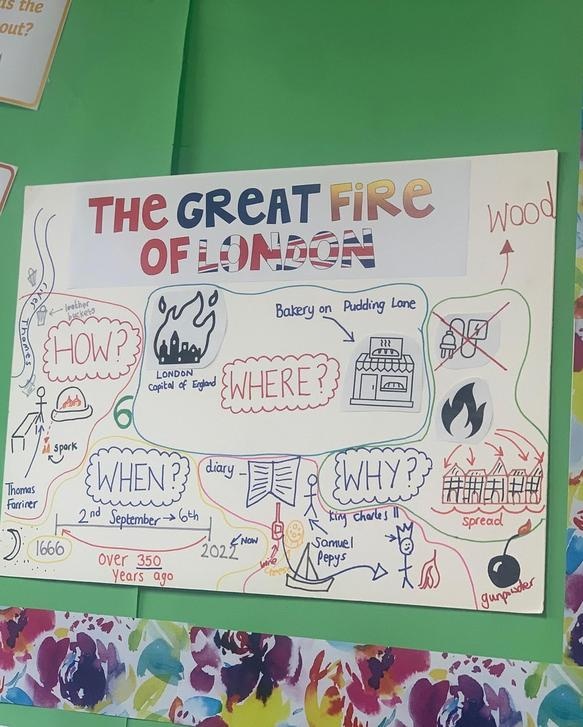 as the
out?
THE GREAT FIRE
OF LONDON
Wood
River Thames
leather
buckets
HOW?
spark
Thomas
Farriner
LONDON
Capital of England
WHERE?
Bakery on Pudding Lane
6
WHEN?
2nd September → 6th
1666
2022
Now
Over 350
Years ago
diary
WHY?
King Charles II
Samuel
Pepys
wine
cheese
spread
gunpowder